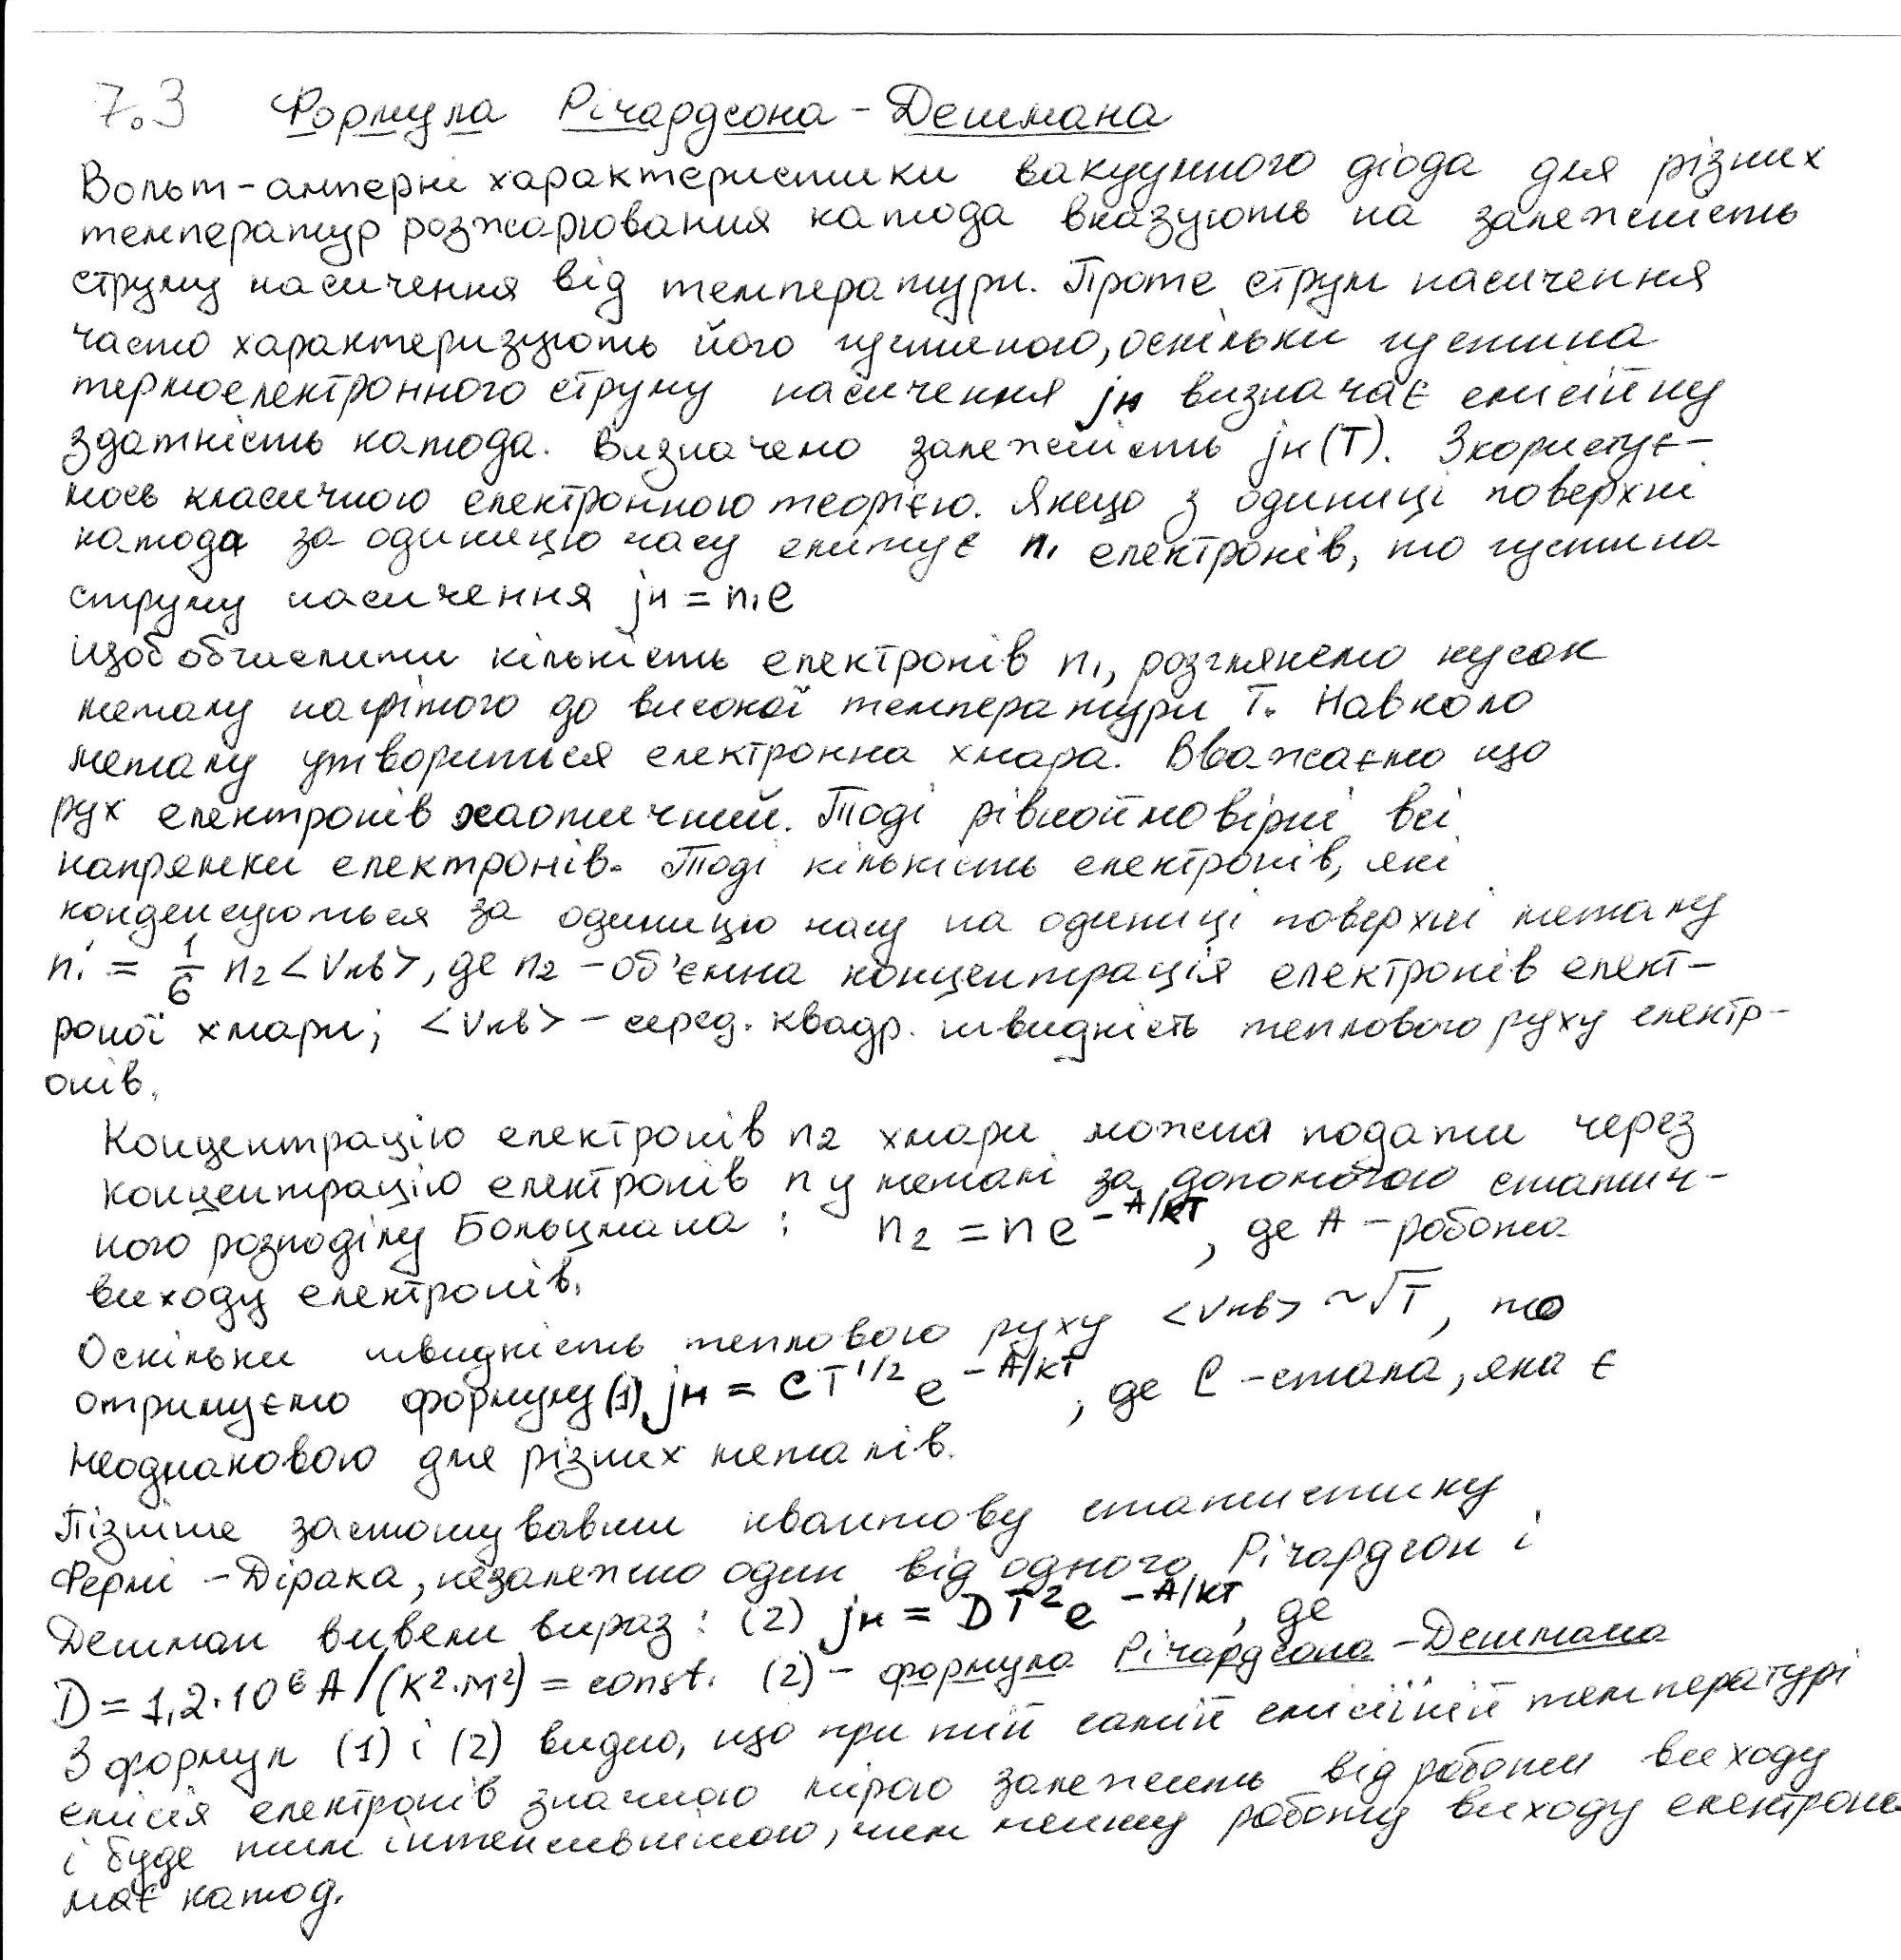 7.3 Формула Річардсона - Дешмана
Вольт-амперні характеристики вакуумного діода для різних
температур розжарювання катода вказують на залежність
струму насичення від температури. Проте струм насичення
часто характеризують його густиною, оскільки густина
термоелектронного струму насичення jн визначає емісійну
здатність катода. Визначено залежність jн(T). Скористує-
мось класичною електронною теорією. Якщо з одиниці поверхні
катода за одиницю часу емітує n₁ електронів, то густина
струму насичення jн = n₁e
Щоб обчислити кількість електронів n₁, розглянемо кусок
металу нагрітого до високої температури T. Навколо
металу утвориться електронна хмара. Вважаємо що
рух електронів хаотичний. Тоді рівноймовірні всі
напрямки електронів. Тоді кількість електронів, які
конденсуються за одиницю часу на одиниці поверхні металу
n₁' = 1/6 n₂ <Vкв>, де n₂ - об'ємна концентрація електронів елект-
роної хмари; <Vкв> - серед. квадр. швидкість теплового руху електр-
онів.
Концентрацію електронів n₂ хмари можна подати через
концентрацію електронів n у металі за допомогою статич-
ного розподілу Больцмана : n₂ = ne^(-A/kT), де A - робота
виходу електронів.
Оскільки швидкість теплового руху <Vкв> ~ √T, то
отримуємо формулу (1) jн = CT^(1/2) e^(-A/kT), де C - стала, яка є
неоднаковою для різних металів.
Пізніше застосувавши квантову статистику
Фермі - Дірака, незалежно один від одного Річардсон і
Дешман вивели вираз : (2) jн = DT² e^(-A/kT), де
D = 1,2·10⁶ A/(K²·м²) = const. (2) - формула Річардсона - Дешмана
З формул (1) і (2) видно, що при тій самій емісійній температурі
емісія електронів значною мірою залежить від роботи виходу
і буде тим інтенсивнішою, чим меншу роботу виходу електронів
має катод.